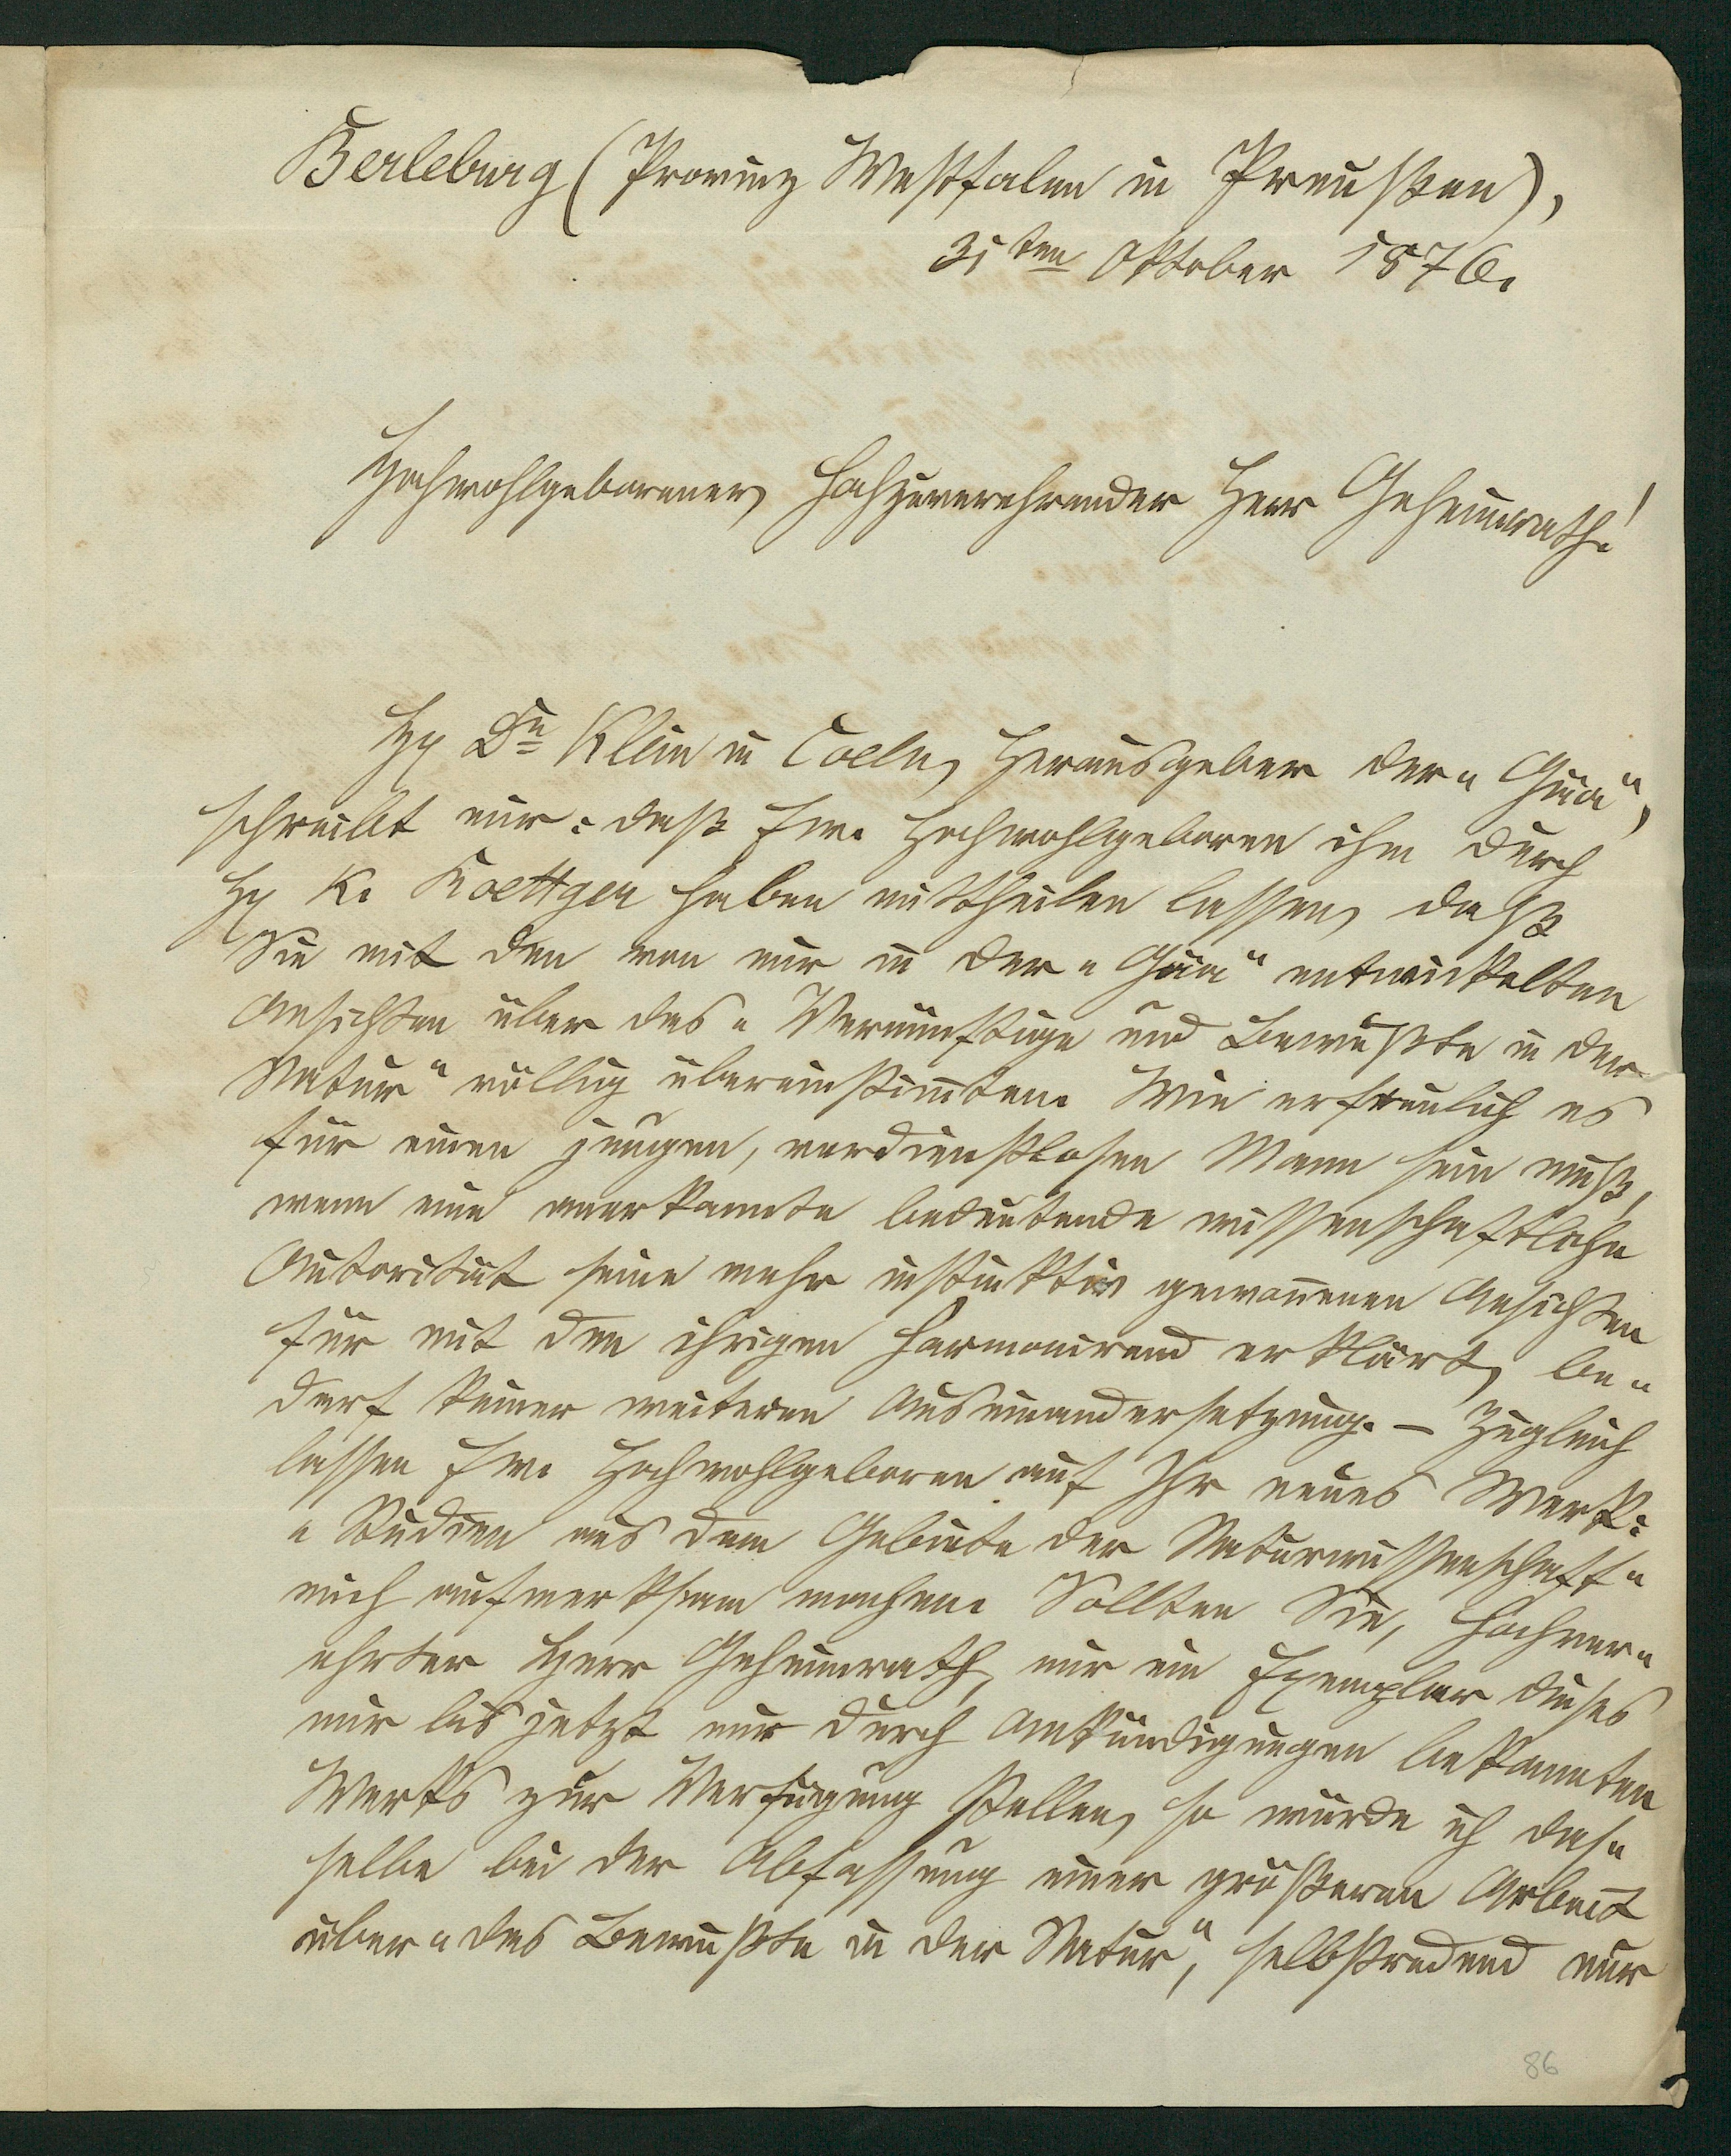 Berleburg (Provinz Westfalen in Preußen),
31ten Oktober 1876.
Hochwohlgeborener, hochzuverehrender Herr Geheimrath!
Hr Dr Klein in Coeln, Herausgeber der „Gäa“,
schreibt mir: daß Ew. Hochwohlgeboren ihm durch
Hr K. Koettgen haben mittheilen lassen, daß
Sie mit den von mir in der „Gäa“ entwickelten
Ansichten über das „Vernünftige und Bewußte in der
Natur“ völlig übereinstimmten. Wie erfreulich es
für einen jungen, verdienstlosen Mann sein muß,
wenn eine anerkannte bedeutende wissenschaftliche
Autorität seine mehr instinktiv gewonnenen Ansichten
für mit den ihrigen harmonirend erklärt, be-
darf keiner weiteren Auseinandersetzung. – Zugleich
lassen Ew. Hochwohlgeboren auf Ihr neues Werk:
„Studien aus dem Gebiete der Naturwissenschaft“
mich aufmerksam machen. Sollten Sie, hochver-
ehrter Herr Geheimrath, mir ein Exemplar dieses
mir bis jetzt nur durch Ankündigungen bekannten
Werks zur Verfügung stellen, so würde ich das-
selbe bei der Abfassung einer größeren Arbeit
über „das Bewußte in der Natur“, selbstredend nur
86